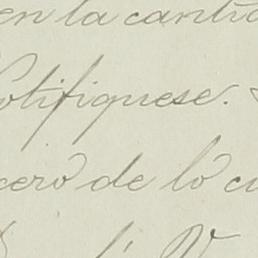 en la cantid
Notifiquese.
cero de lo cu